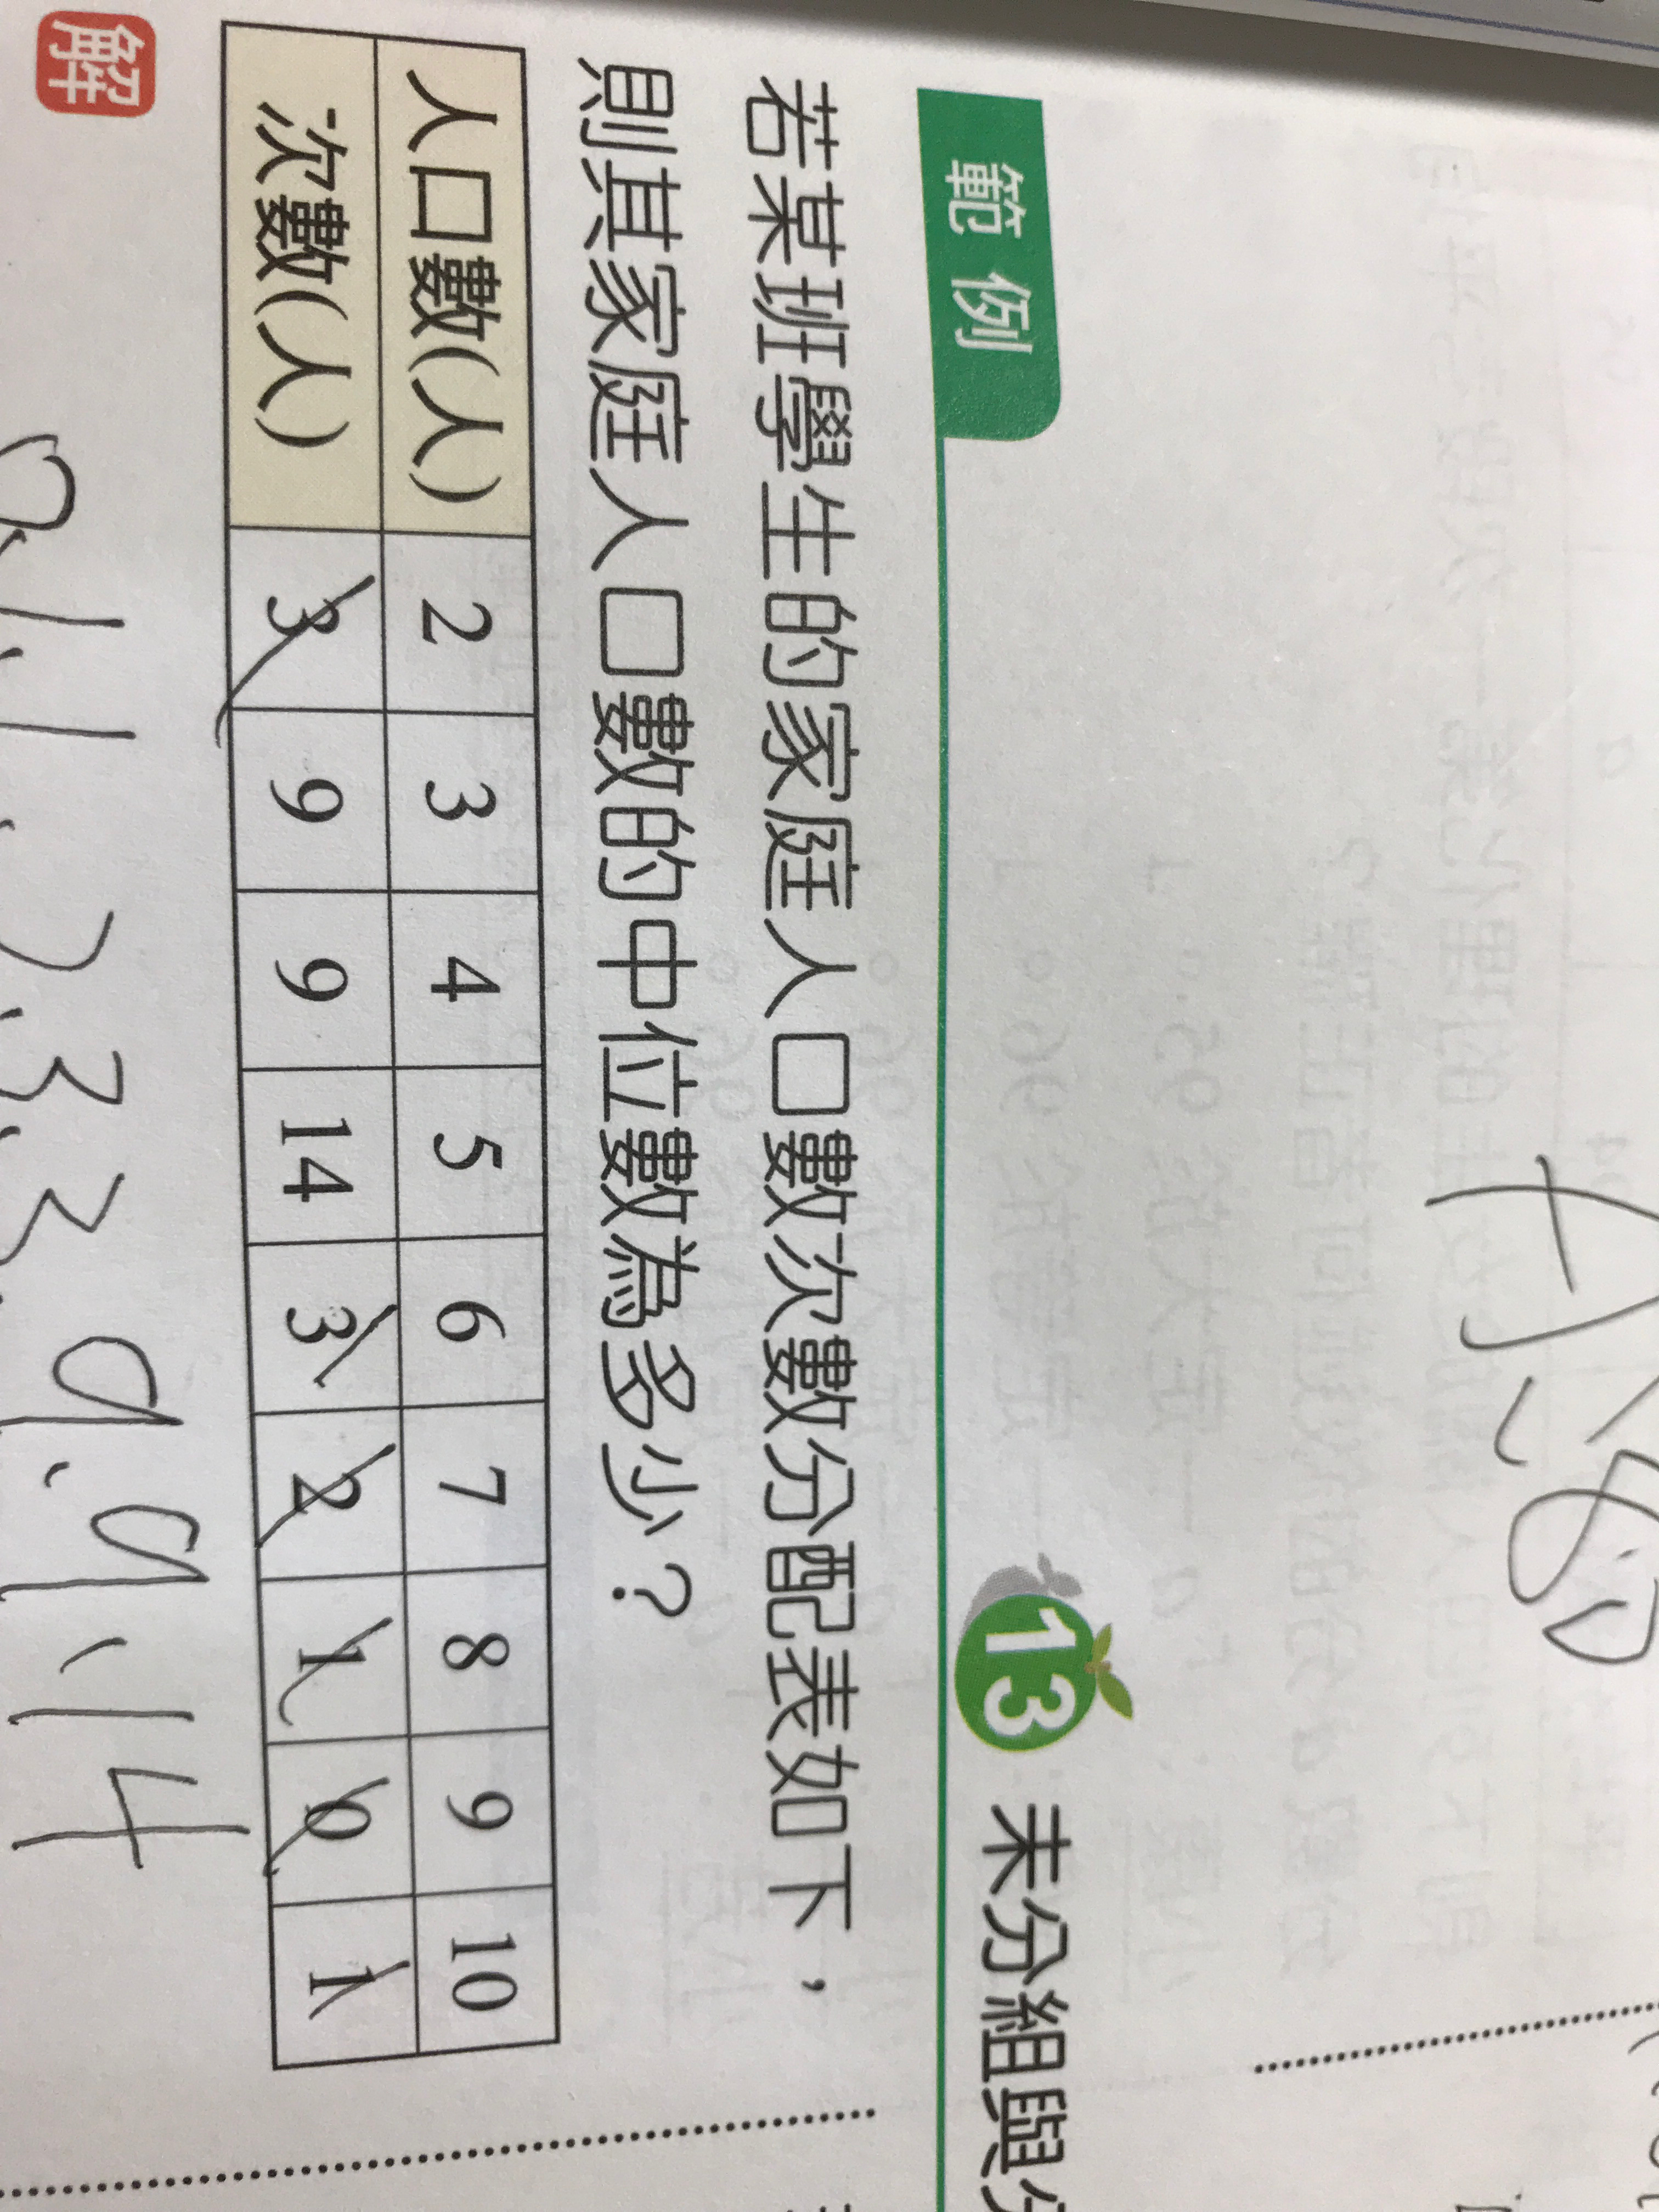 範例 13 未分組與分
若某班學生的家庭人口數次數分配表如下，
則其家庭人口數的中位數為多少？
人口數(人) 2 3 4 5 6 7 8 9 10
次數(人) 3 9 9 14 3 2 1 0 1
解
0,1,1,2,3,3,9,9,14